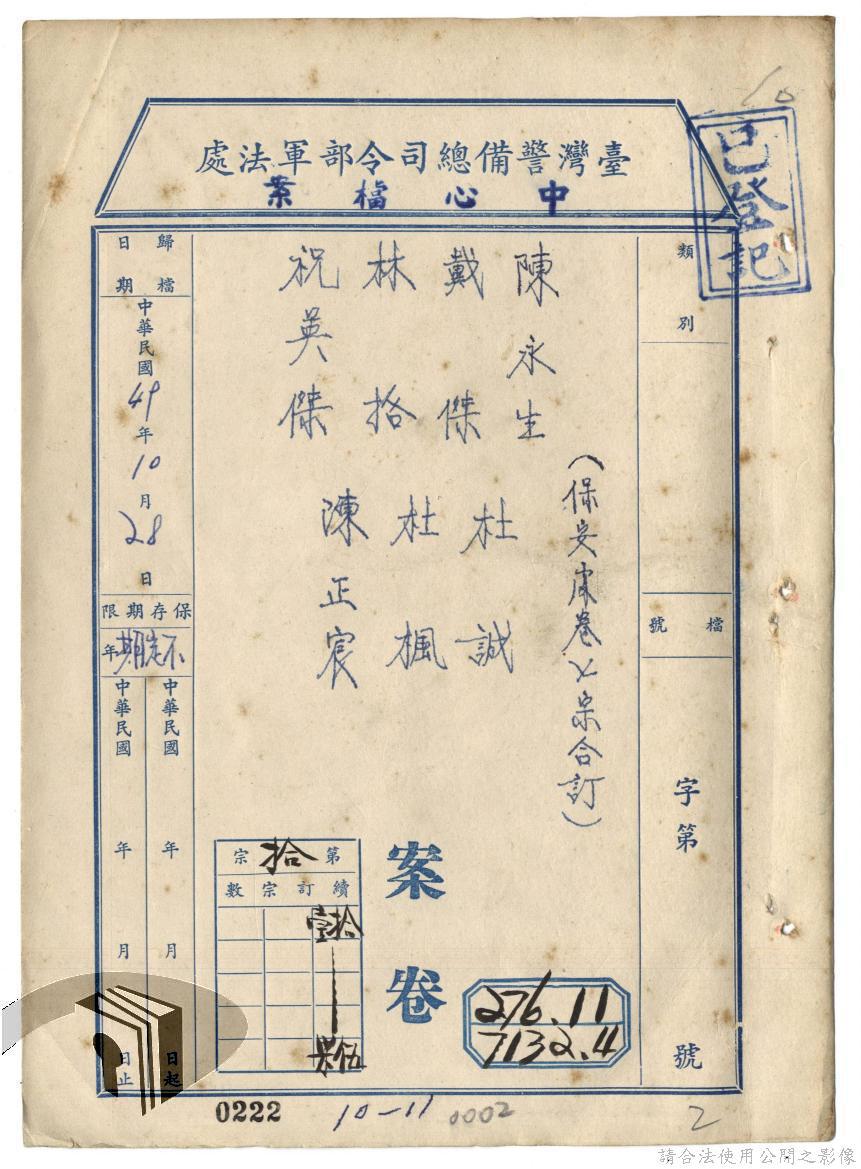 臺灣警備總司令部軍法處
中心檔案
已登記
類別
檔號
字第
號
陳永生
戴傑
林拾
祝英傑
杜誠
杜楓
陳正宸
(保安
卷
宗合訂)
案卷
歸檔日期
中華民國49年10月28日
保存期限
不定期年
中華民國 年 月 日起
中華民國 年 月 日止
第拾宗
續訂宗數
拾壹
276.11
7132.4
0222
10-11
0002
2
請合法使用公開之影像